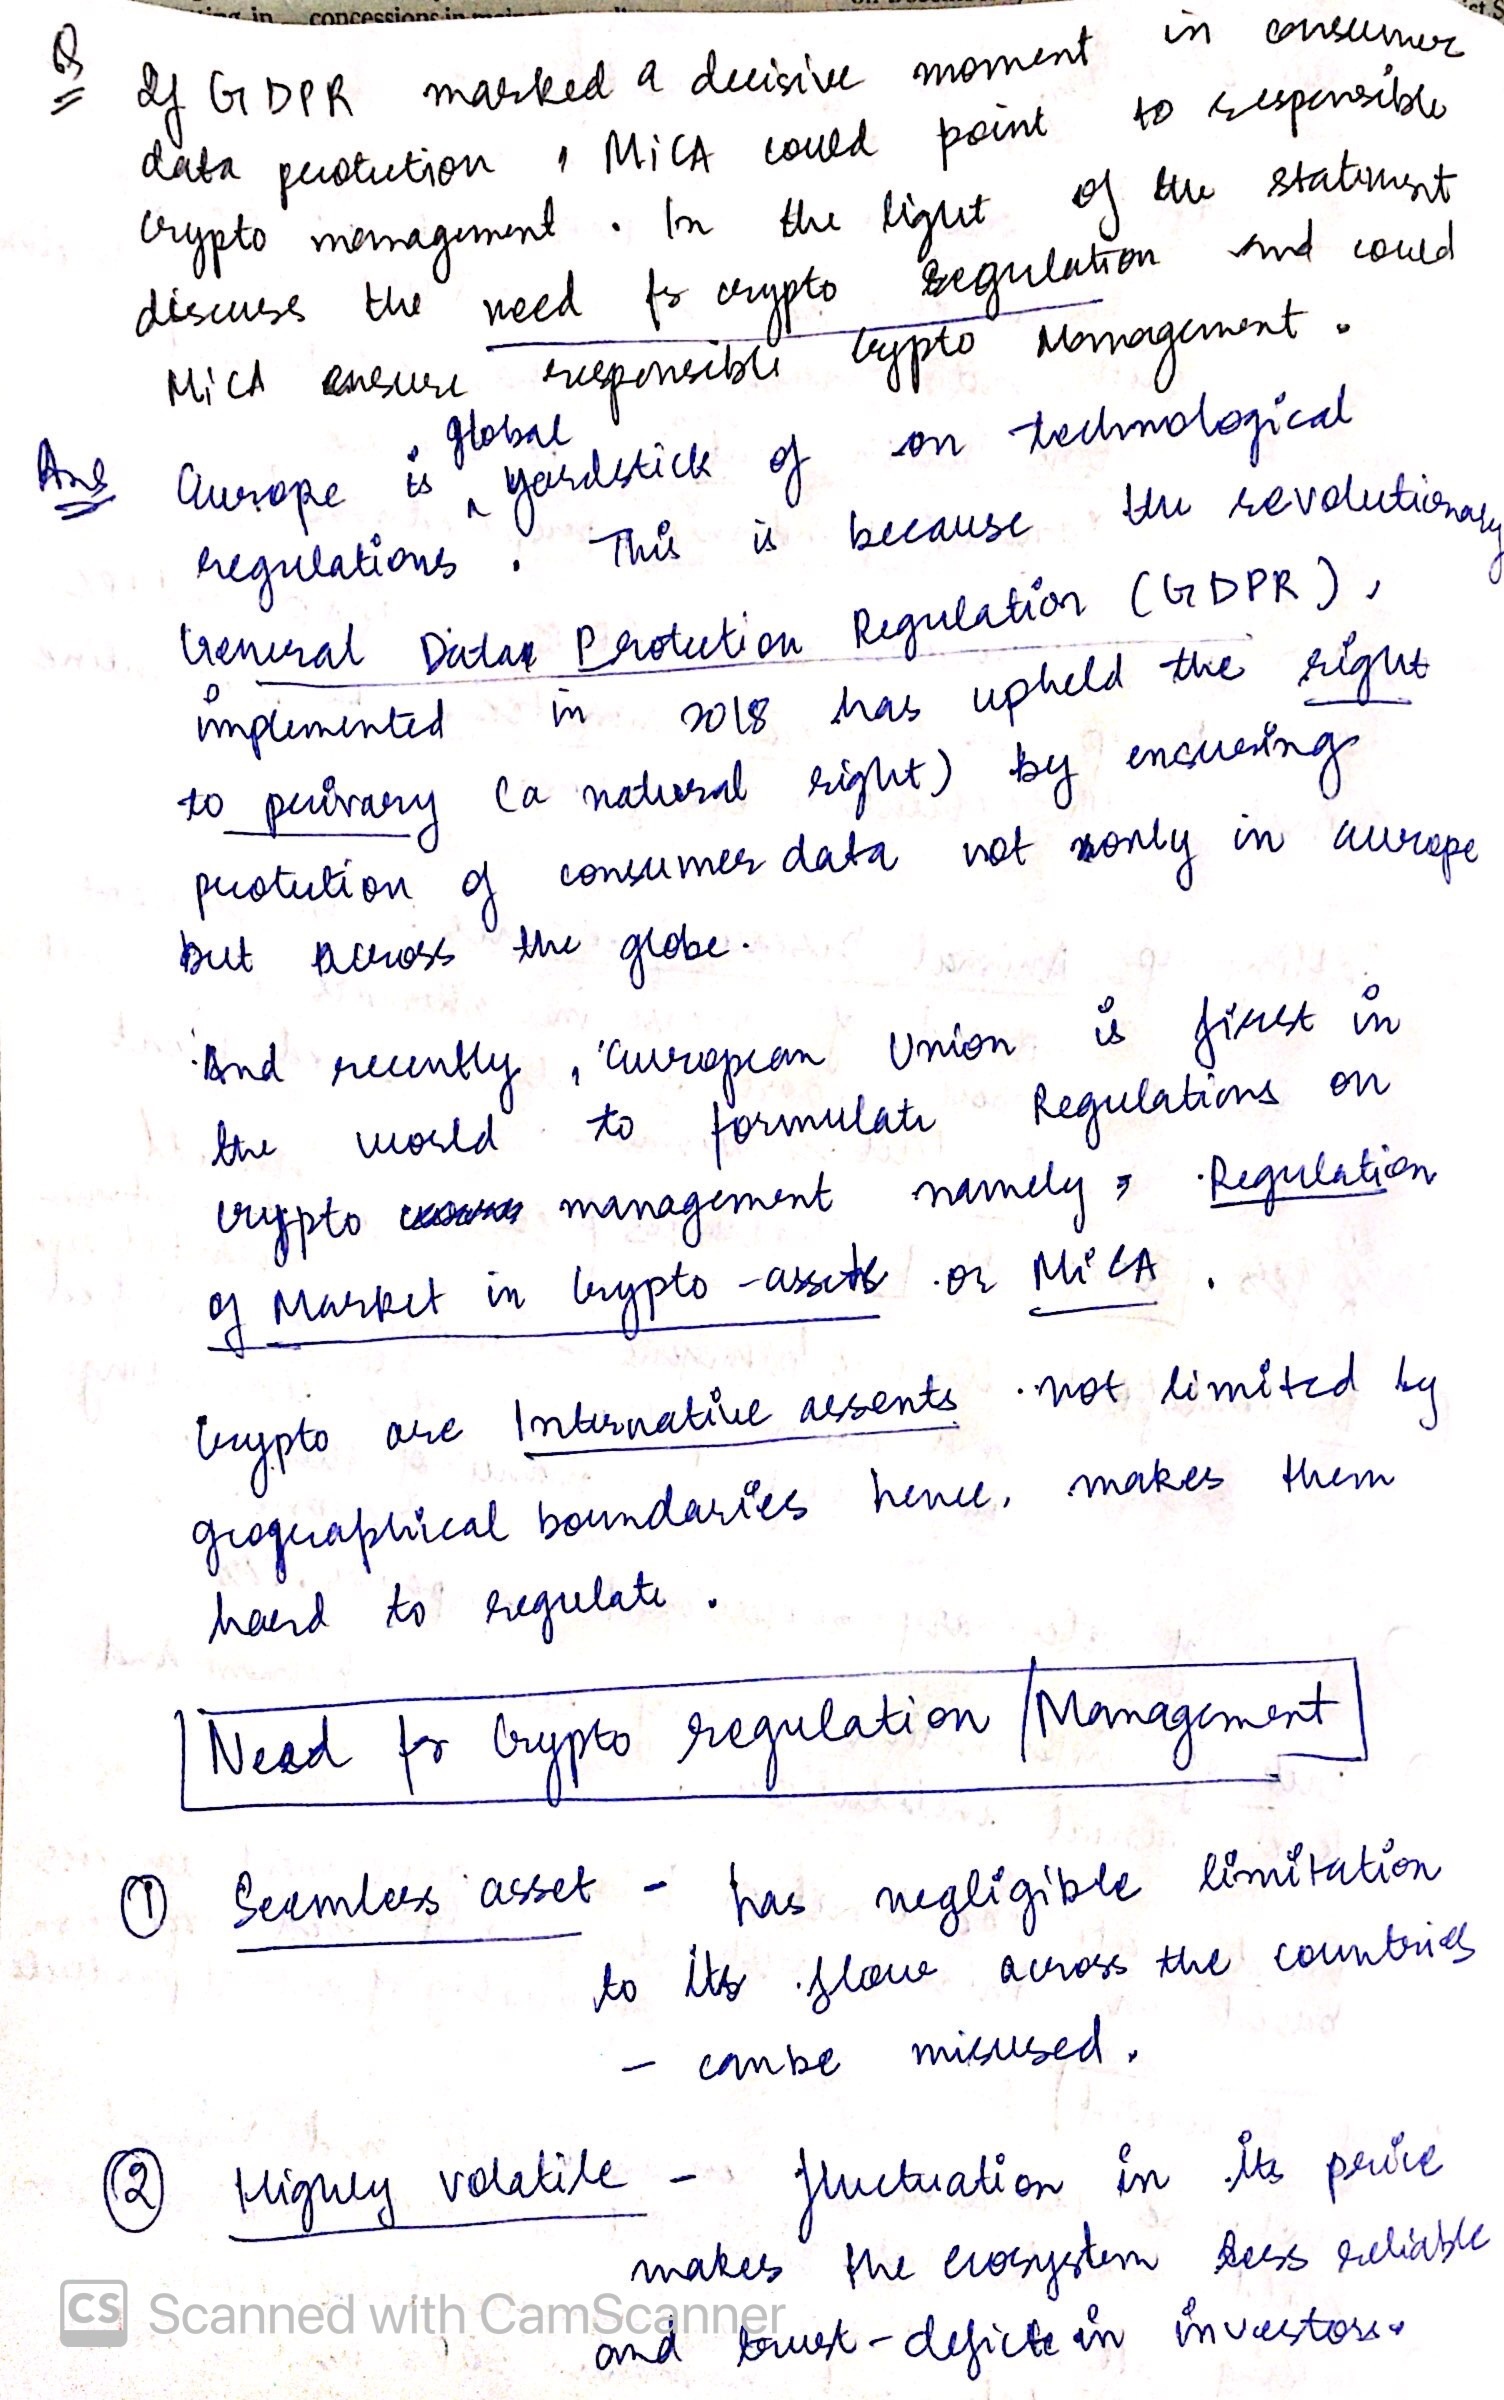 ting in concessions in
Q If GDPR marked a decisive moment in consumer
data protection, MiCA could point to responsible
crypto management. In the light of the statement
discuss the need for crypto regulation and could
MiCA ensure responsible crypto Management.
Ans Europe is global yardstick of on technological
regulations. This is because the revolutionary
General Data Protection Regulation (GDPR),
implemented in 2018 has upheld the right
to privacy (a natural right) by ensuring
protection of consumer data not only in Europe
but across the globe.
And recently, European Union is first in
the world to formulate Regulations on
crypto management namely, Regulation
of Market in Crypto-assets or MiCA.
Crypto are Internative assents not limited by
geographical boundaries hence, makes them
hard to regulate.
Need for Crypto regulation/Management
① Seemless asset - has negligible limitation
to its flow across the countries
- can be misused.
② Highly volatile - fluctuation in its price
makes the ecosystem less reliable
and trust-deficit in investors.
CS Scanned with CamScanner